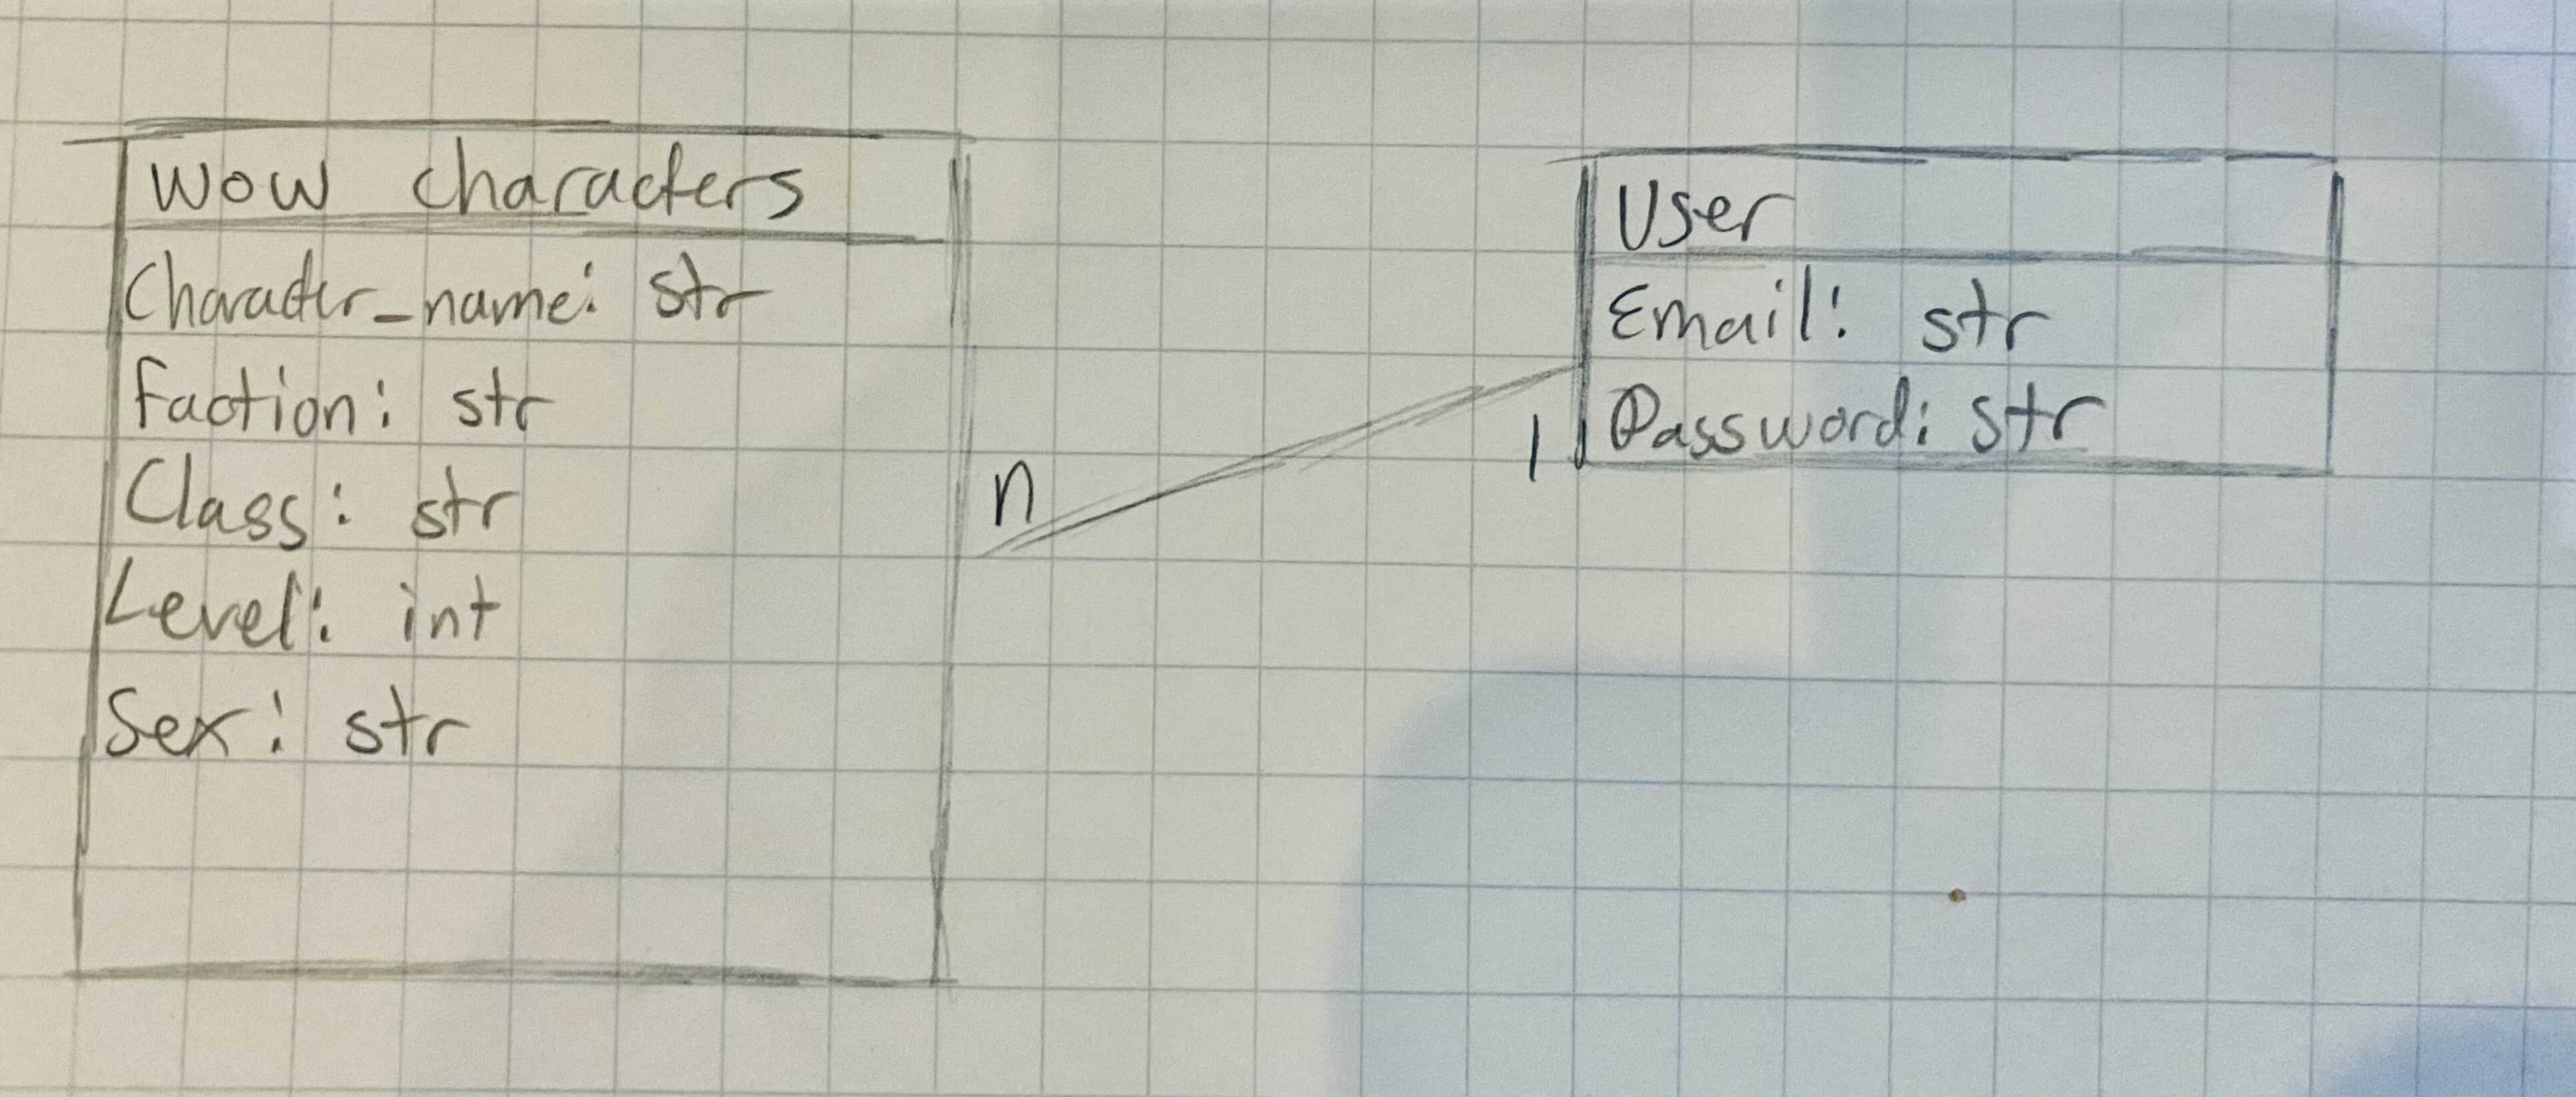 Wow characters
Character_name: str
Faction: str
Class: str
Level: int
Sex: str
n
1
User
Email: str
Password: str